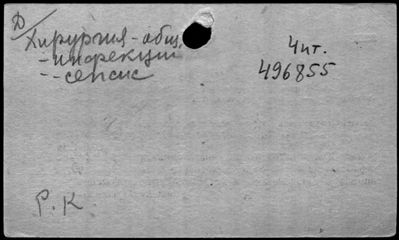 Д
Хирургия - общ.
- инфекции
- - сепсис
4 чт.
496855
Р. К